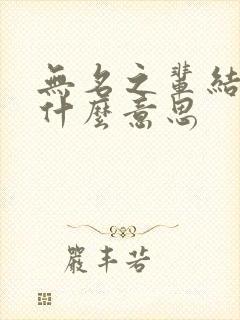 無名之輩結
什麼意思
嚴丰若